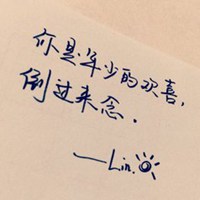 你是年少的欢喜，
倒过来念．
——Lin.